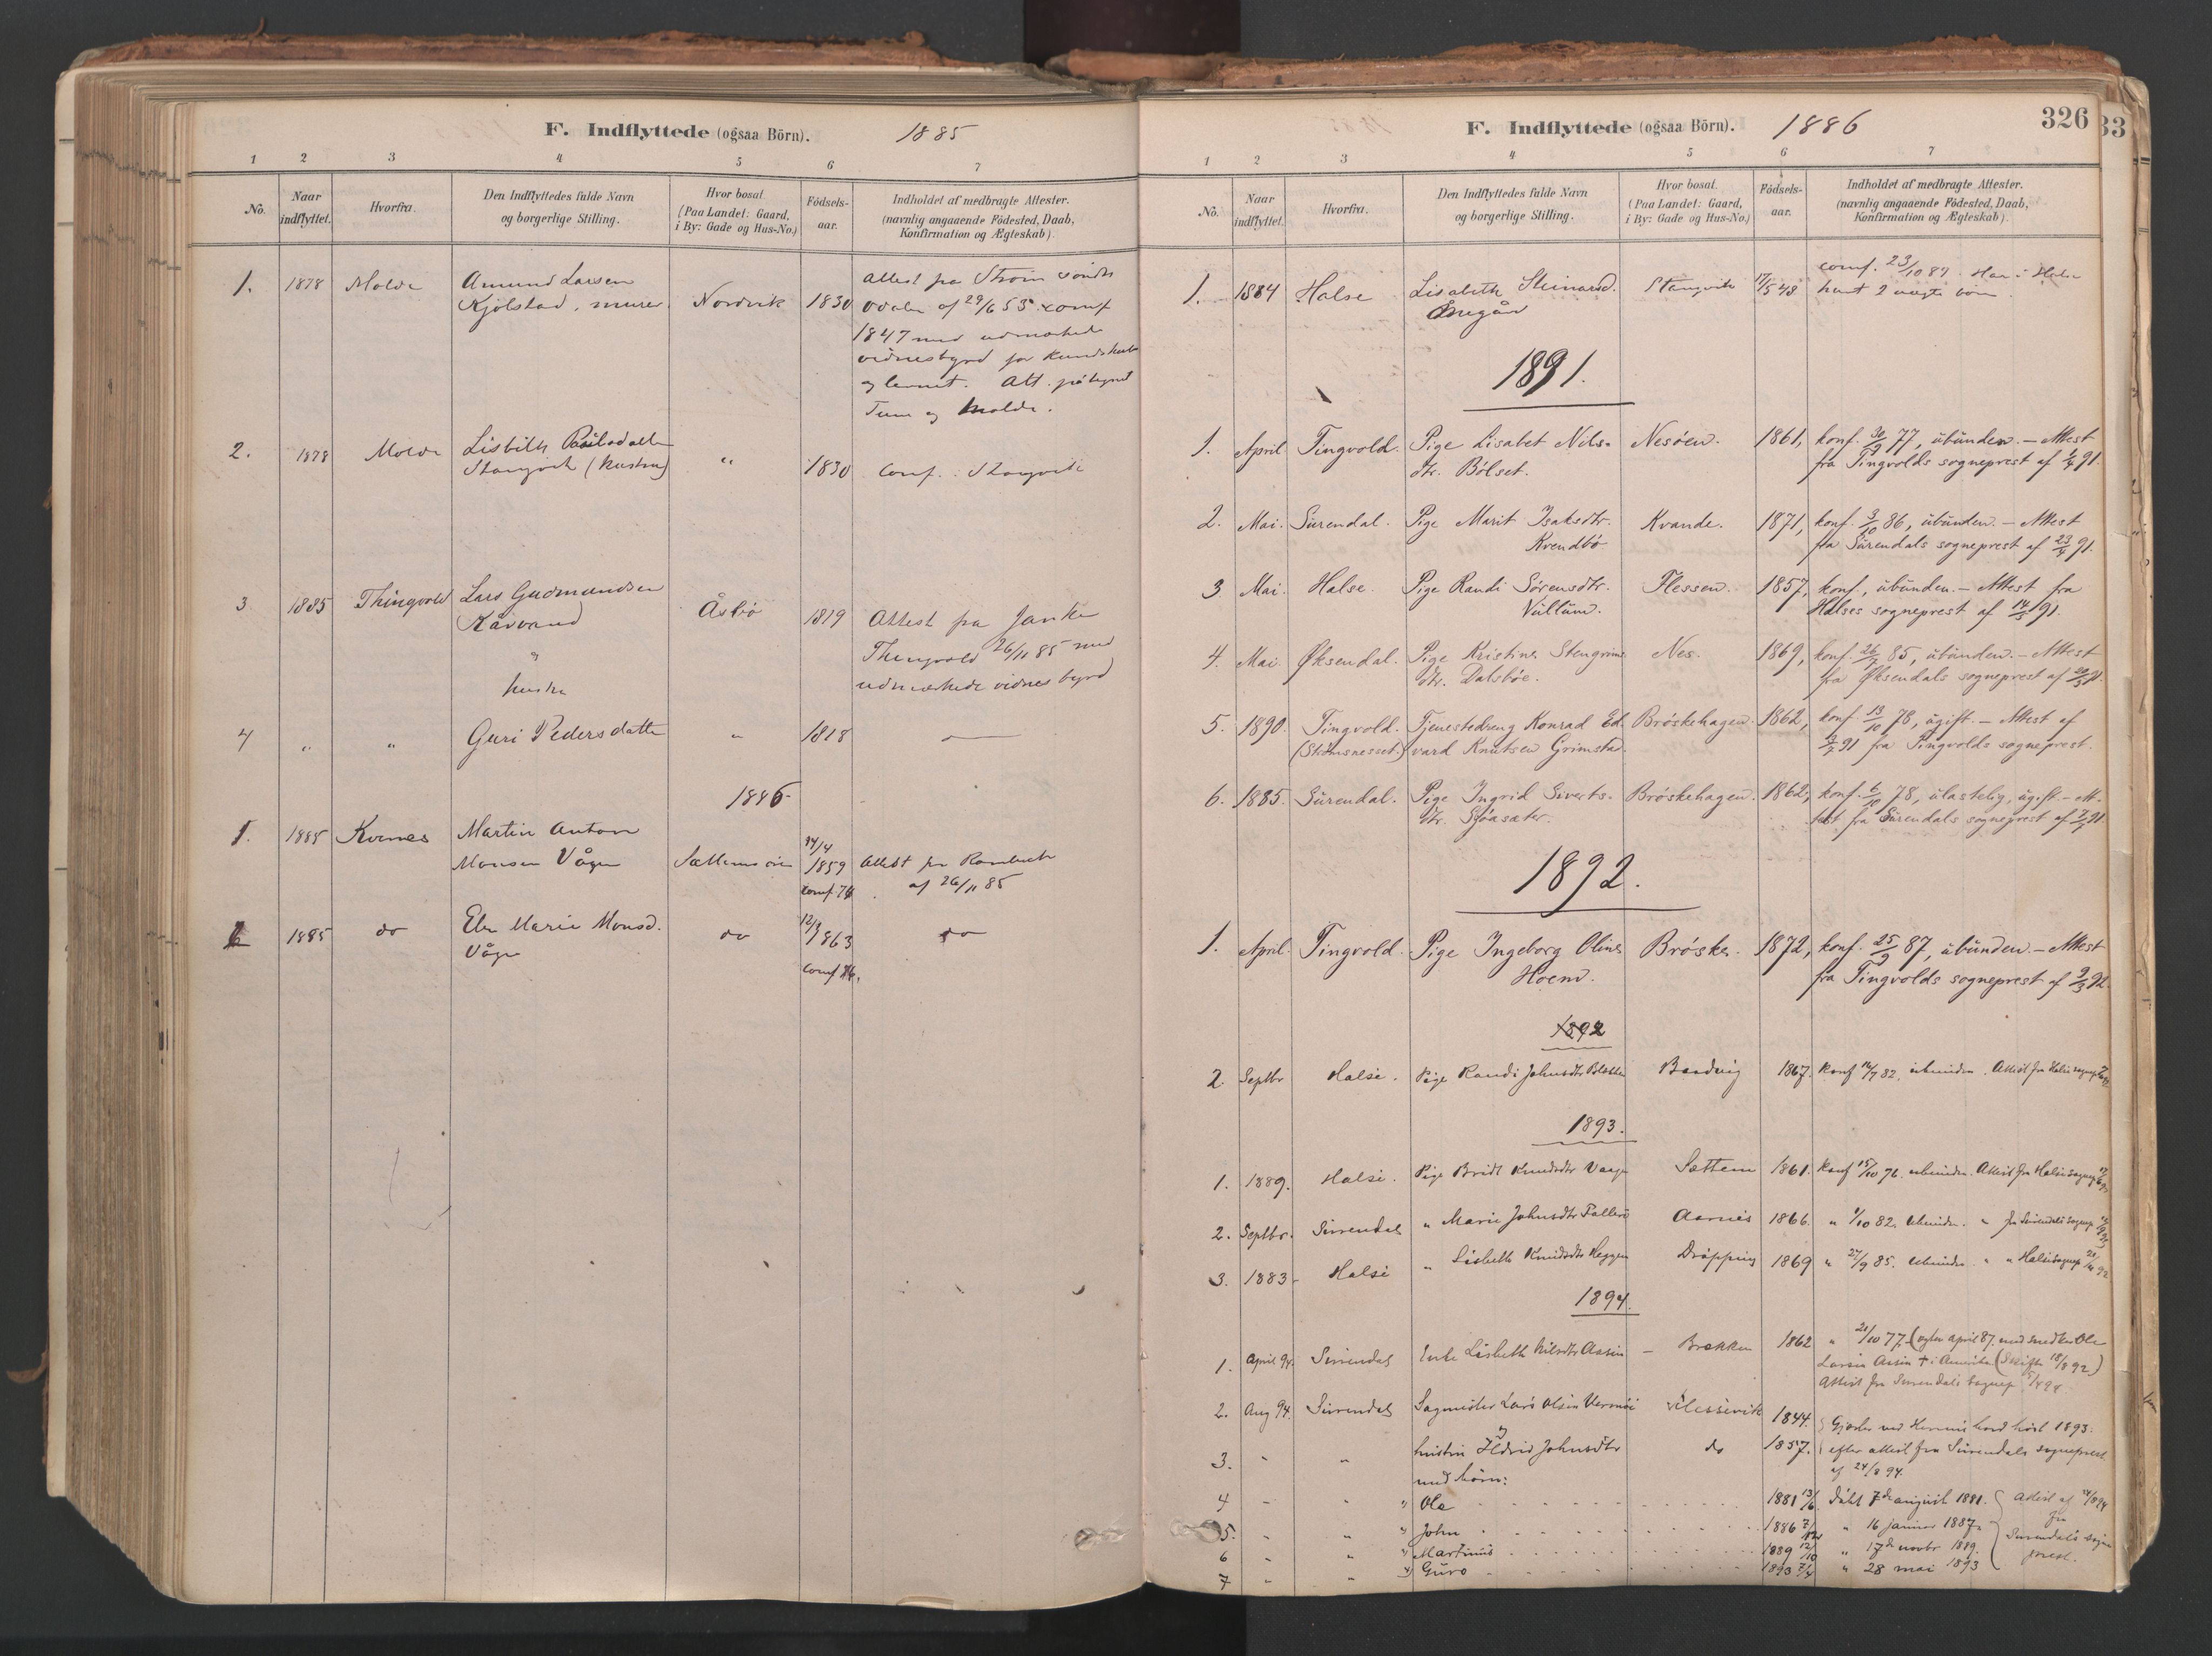 F. Indflyttede (ogsaa Börn). 1885
1 2 3 4 5 6 7
No. Naar indflyttet. Hvorfra. Den Indflyttedes fulde Navn og borgerlige Stilling. Hvor bosat. (Paa Landet: Gaard, i By: Gade og Hus-No.) Födsels-aar. Indholdet af medbragte Attester. (navnlig angaaende Födested, Daab, Konfirmation og Ægteskab).
1. 1878 Molde Amund Larsen Nordvik 1830 Attest fra Strøm søndre
Kjølstad, murer Odalen af 29/6 55. conf
1847 med udmærkede
vidnesbyrd for kundskab
og levnet. Att. påtegnet
og Molde.
2. 1878 Molde Lisbeth " 1830 Conf. i Stangvik
Stangvik (hustru)
3 1885 Thingvold Lars Gudmundsen Åsbø 1819 Attest fra
Kårvand Thingvold 26/11 85 med
og udmærkede vidnesbyrd
hustru
4 " " Guri Pedersdatter " 1818 —
1886
1. 1885 Kvernes Martin Anton 1859 Attest fra
Monsen Vågen conf. 74 af 26/11 85
2 1885 do Marie Monsd. do 12/3 1863 do
Vågen conf
F. Indflyttede (ogsaa Börn). 1886 326
33
1 2 3 4 5 6 7
No. Naar indflyttet. Hvorfra. Den Indflyttedes fulde Navn og borgerlige Stilling. Hvor bosat. (Paa Landet: Gaard, i By: Gade og Hus-No.) Födsels-aar. Indholdet af medbragte Attester. (navnlig angaaende Födested, Daab, Konfirmation og Ægteskab).
1. 1884 Halse Lisabeth Steinarsd. Stangvik 17/5 48 conf. 23/10 Har i Halse
havt 2 uægte børn
1891.
1. April Tingvold. Pige Lisabet Nils- Nesøen. 1861, konf. 30/9 77, ubunden. — Attest
dtr. Bølset. fra Tingvolds sogneprest af 91.
2. Mai. Surendal. Pige Marit Isaksdtr. Kvande. 1871, konf. 3/10 86, ubunden. — Attest
Kvendbø fra Surendals sogneprest af 91.
3 Mai. Halse. Pige Randi Sørensdtr. Flessen. 1857, konf., ubunden. — Attest fra
Vullum. Halses sogneprest af 14/5 91.
4. Mai. Øksendal. Pige Kristine Stengrims Nes. 1869, konf. 85, ubunden. — Attest
dtr. Dalsbøe. fra Øksendals sogneprest af 91.
5. 1890. Tingvold. Tjenestedreng Konrad Ed- Brøskehagen. 1862, konf. 13/10 78, ugift. — Attest af
(Strømsnesset.) vard Knutsen Grimstad. 91 fra Tingvolds sogneprest.
6. 1885. Surendal. Pige Ingrid Siverts- Brøskehagen. 1862, konf. 6/10 78, ulastelig, ugift. — At-
dtr. Sjøasæter. test fra Surendals sogneprest af 91.
1892.
1. April. Tingvold. Pige Ingeborg Oline Brøske. 1872, konf. 25/9 87, ubunden. — Attest
Hoem. fra Tingvolds sogneprest af 9/3 92.
1892
2. Septbr Halse. Pige Randi Johnsdtr 1867. konf 82, ubunden. Attest fra Halse sognep
1893.
1. 1889. Halse. Pige Knudsdtr Vaagen Sættem 1861. konf 15/10 76. ubunden. Attest fra Halse sognep
2. Septbr. Surendal " Marie Johnsdtr Aarnes 1866. " 1/10 82. ubunden. " fra Surendals sognep
3. 1883 Halse " Lisbeth Knudsdtr Heggem Drøpping 1869 " 27/9 85. ubunden. " " Halse sognep
1894.
1. April 94. Surendal Enke Lisbeth Nilsdtr Aasen — Brækken 1862 " 21/10 77. (egtev. april 87 med snedker Ole
Larsen Aasen † i Amerika (Skifte 18/8 92)
Attest fra Surendals sognep.
2. Aug 94. Surendal Sagmester Lars Olsen 1844.
og høst 1893.
3. " " hustru Johnsdtr do 1857. efter attest fra Surendals sogneprest
med børn: af 24/8 94.
4 " " " Ole 1881 13/6 døbt 7de august 1881. Attest af 24/8 94
5. " " " John 1886 7/12 " 16 januar 1887. fra
6 " " " Martinus 1889 12/10 " 17de novbr 1889. Surendals sogne-
7 " " " Guro 1893 7/4 " 28 mai 1893 prest.